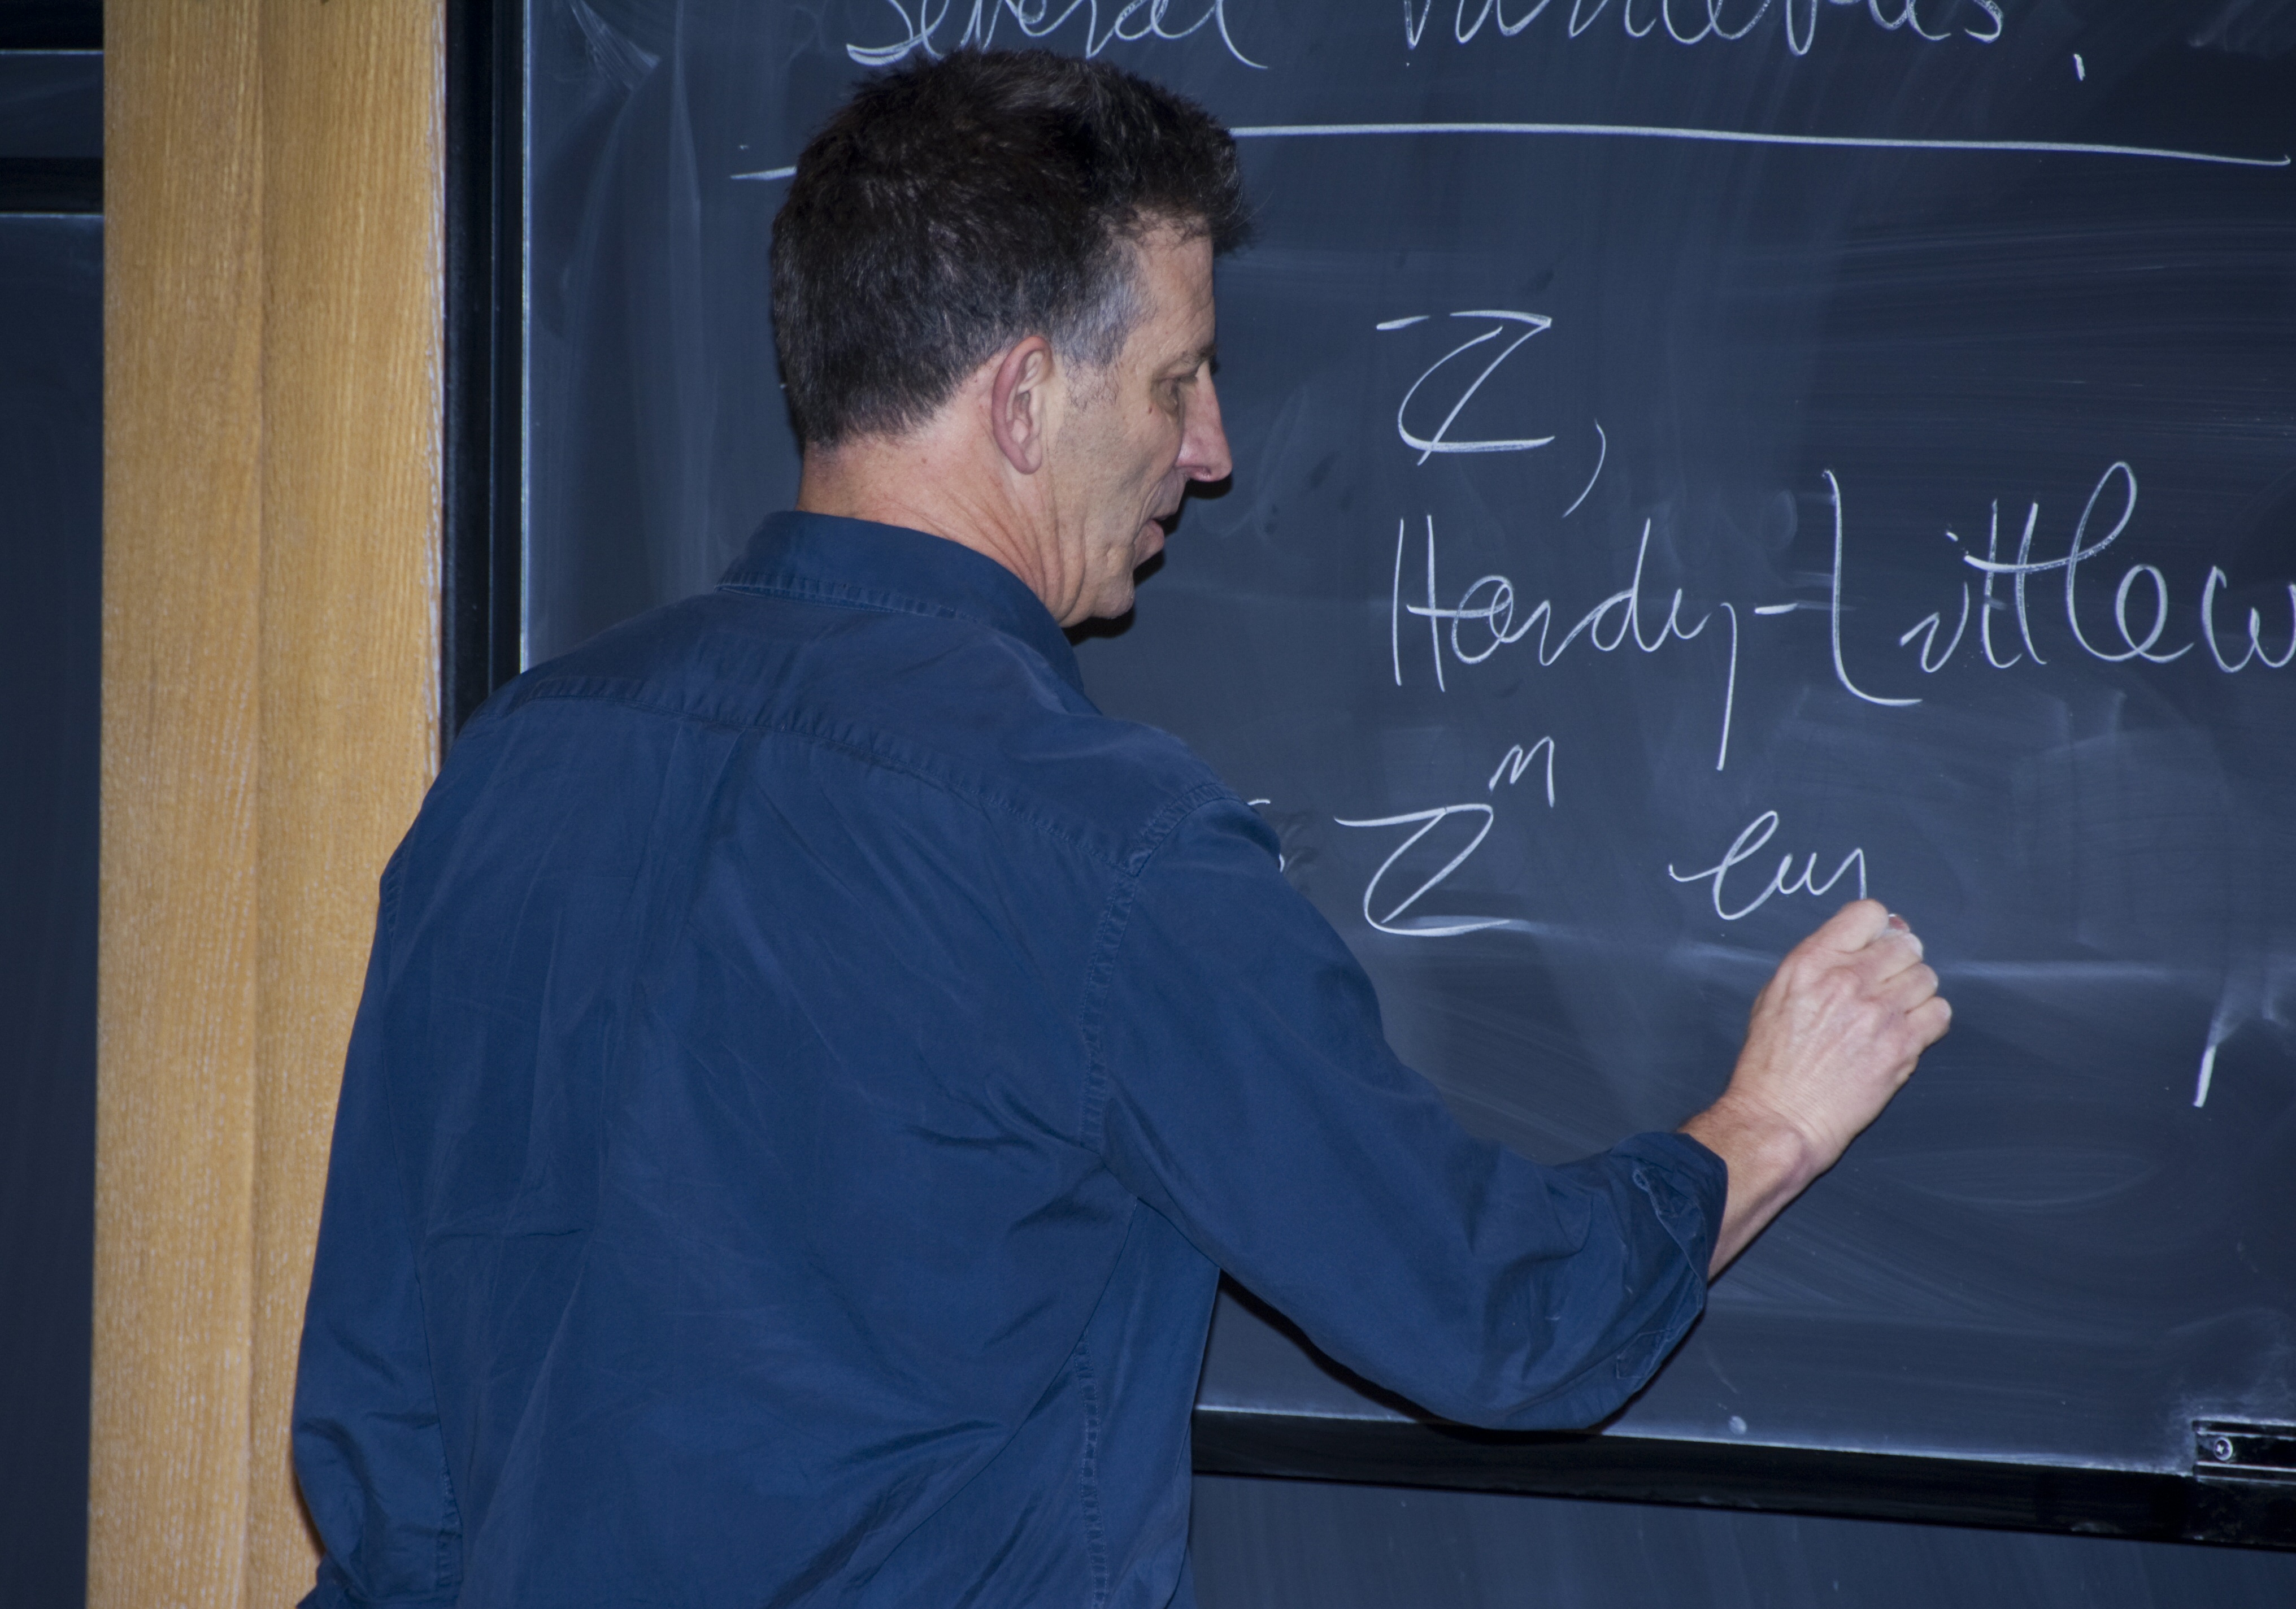 several variables.
Z,
Hardy-Littlew
Z^n